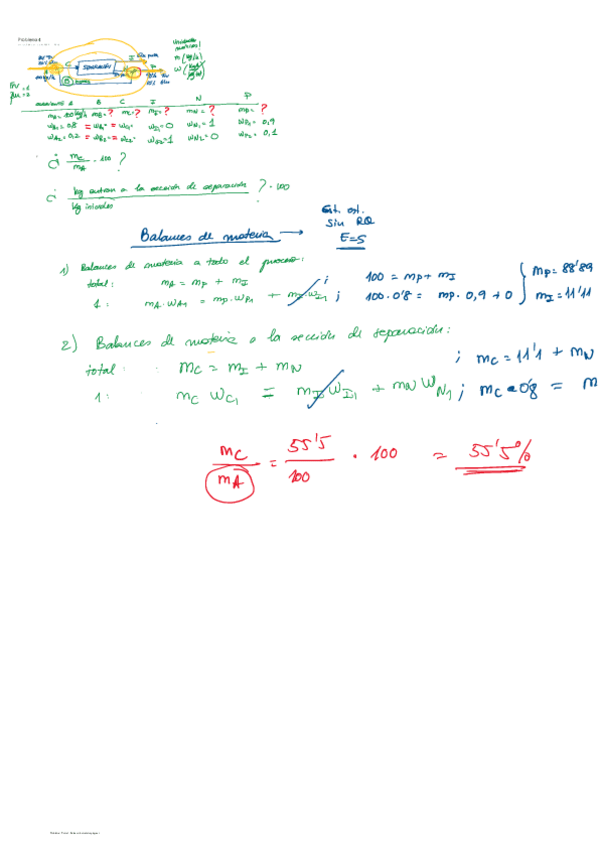 Problema 6
Separación
m (kg/h)
corrientes A B C I N P
mA = 100 kg/h mB = ? mC = ? mI = ? mN = ? mP = ?
wA1 = 0,8 = wB1 = = wC1 = wI1 = 0 wN1 = 1 wP1 = 0,9
wA2 = 0,2 = wB2 = = wC2 = wI2 = 1 wN2 = 0 wP2 = 0,1
¿ mC / mA · 100 ?
¿ kg entran a la sección de separación / kg iniciales ? · 100
Balances de materia → Est. est.
Sin RQ
E=S
1) Balances de materia a todo el proceso:
total: mA = mP + mI ; 100 = mP + mI mP = 88'89
1: mA · wA1 = mP · wP1 + mI · wI1 ; 100 · 0'8 = mP · 0,9 + 0 mI = 11'11
2) Balances de materia a la sección de separación:
total: mC = mI + mN ; mC = 11'1 + mN
1: mC wC1 = mI wI1 + mN wN1 ; mC · 0'8 = m
mC / mA = 55'5 / 100 · 100 = 55'5%